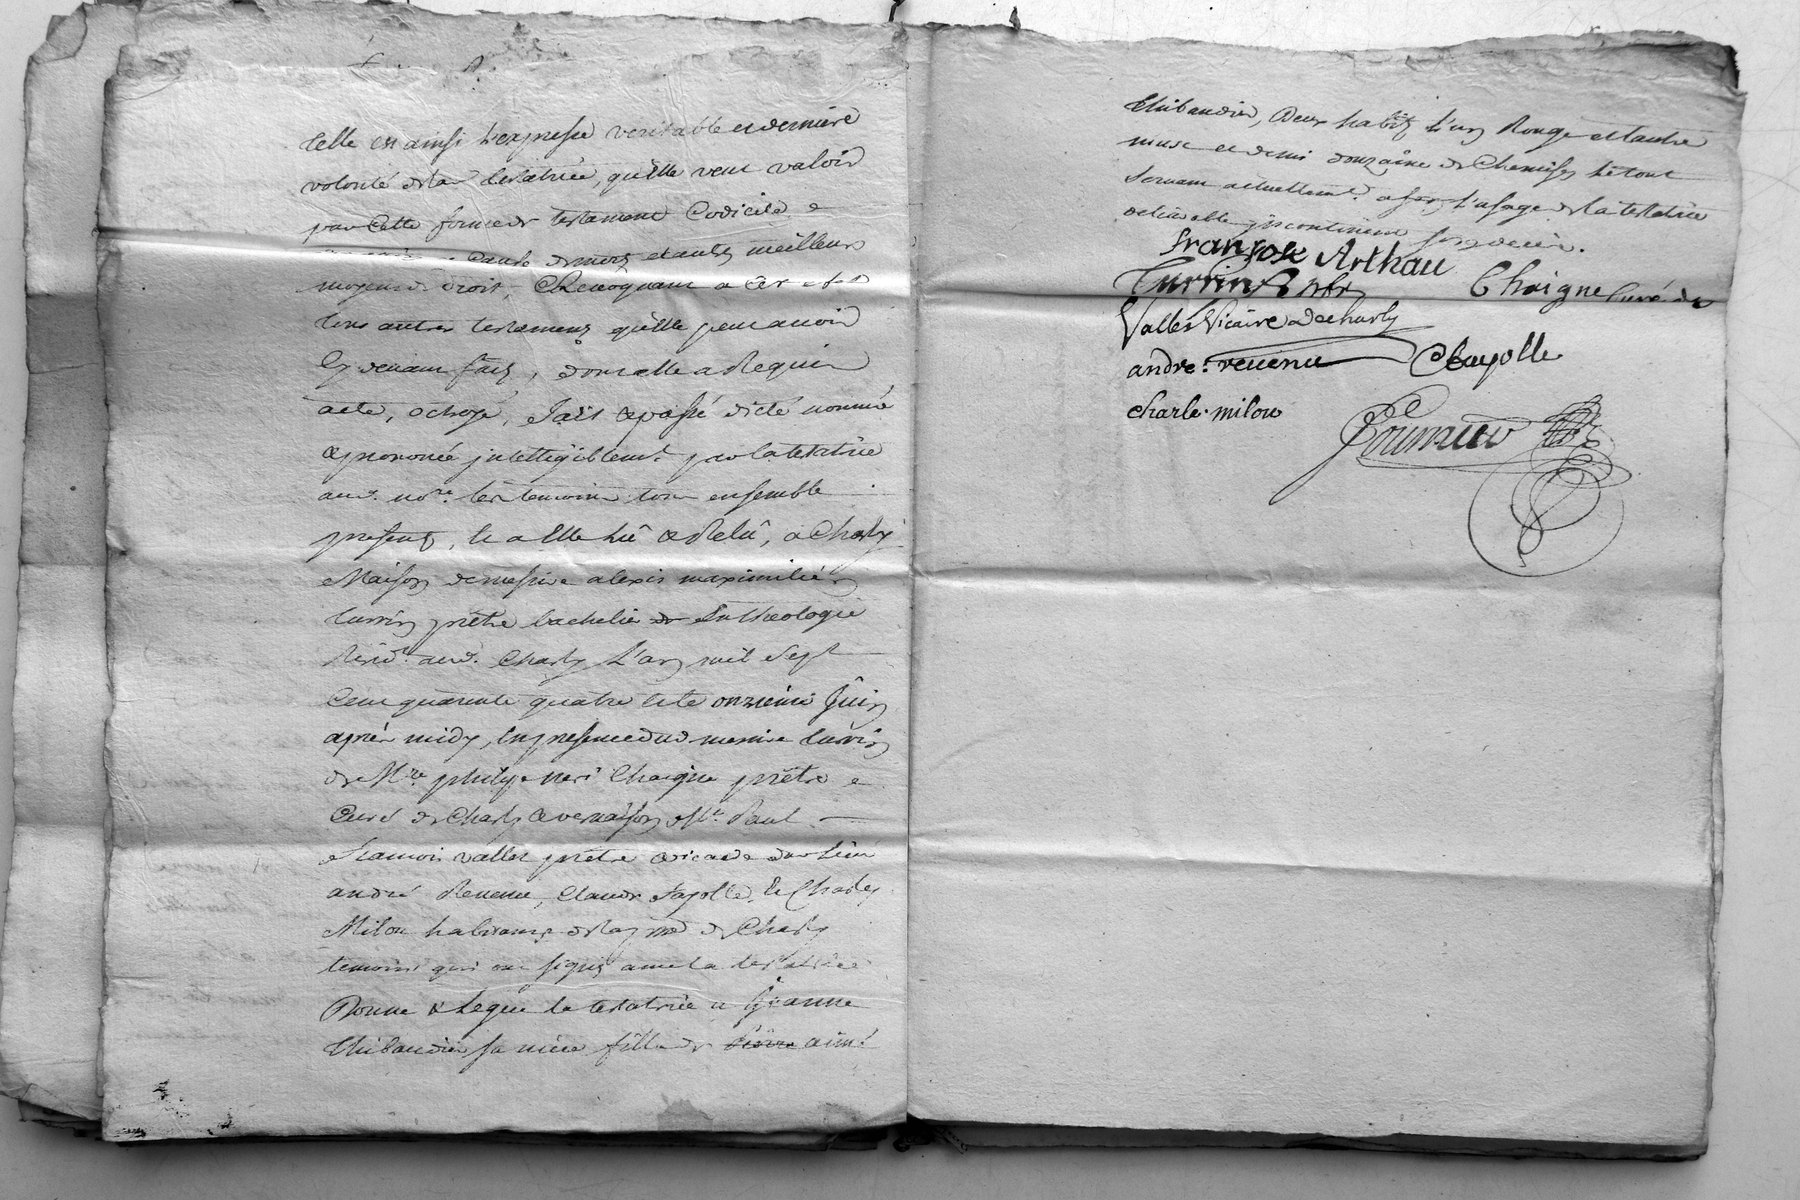 Celle est ainsi l'expresse veritable et derniere
volonté de la testatrice, qu'elle veut valoir
par cette forme de testament Codicile &
cause de mort et autres meilleurs
moyens de droit, Revoquant a cet effet
tous autres testaments qu'elle peut avoir
cy devant faits, dont elle a Requis
acte, octroyé, fait & passé dicté nommé
& prononcé intelligiblemt. par la testatrice
aud. nore. & es temoins tous ensemble
presents, & a Elle lû & Relû, a Charly
Maison de messire alexis maximilien
Turrin prêtre bachelier de En theologie
Residt. aud. Charly L'an mil Sept
Cent quarante quatre & le onzieme Juin
après midy, En presence dud messire turrin
de Mre. philipe neri Chaigne prêtre &
Curé de Charly & vernaison Mre. Paul
francois valles prêtre & vicaire dud lieu
andré Revenu, Claude fayolle, & Charles
Milon habitants de Charly
temoins qui ont signés avec la testatrice
Donne & legue la testatrice a Jeanne
Thibaudier sa niece fille de pierre aimé
Thibaudier, Deux habits l'un Rouge et l'autre
musc et demi douzaine de Chemises le tout
servant actuellemt. a l'usage de la testatrice
delivrable incontinent son decès.
françoise Arthau
Turrin ptre
Chaigne Curé de
Valles Vicaire de charly
andre. revenu
C fayolle
charle. milon